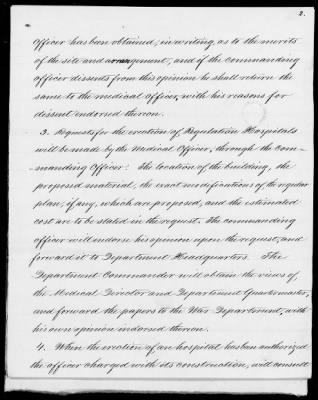 2.
Officer has been obtained, in writing, as to the merits
of the site and arrangement; and if the commanding
officer dissents from this opinion he shall return the
same to the medical officer, with his reasons for
dissent endorsed thereon.
3. Requests for the erection of Regulation Hospitals
will be made by the Medical Officer, through the Com-
-manding Officer: The location of the building, the
proposed material, the exact modifications of the regular
plan, if any, which are proposed, and the estimated
cost are to be stated in the request. The commanding
officer will endorse his opinion upon the request, and
forward it to Department Headquarters. The
Department Commander will obtain the views of,
the Medical Director and Department Quartermaster,
and forward the papers to the War Department, with
his own opinion indorsed thereon.
4. When the erection of an hospital has been authorized
the officer charged with its construction, will consult